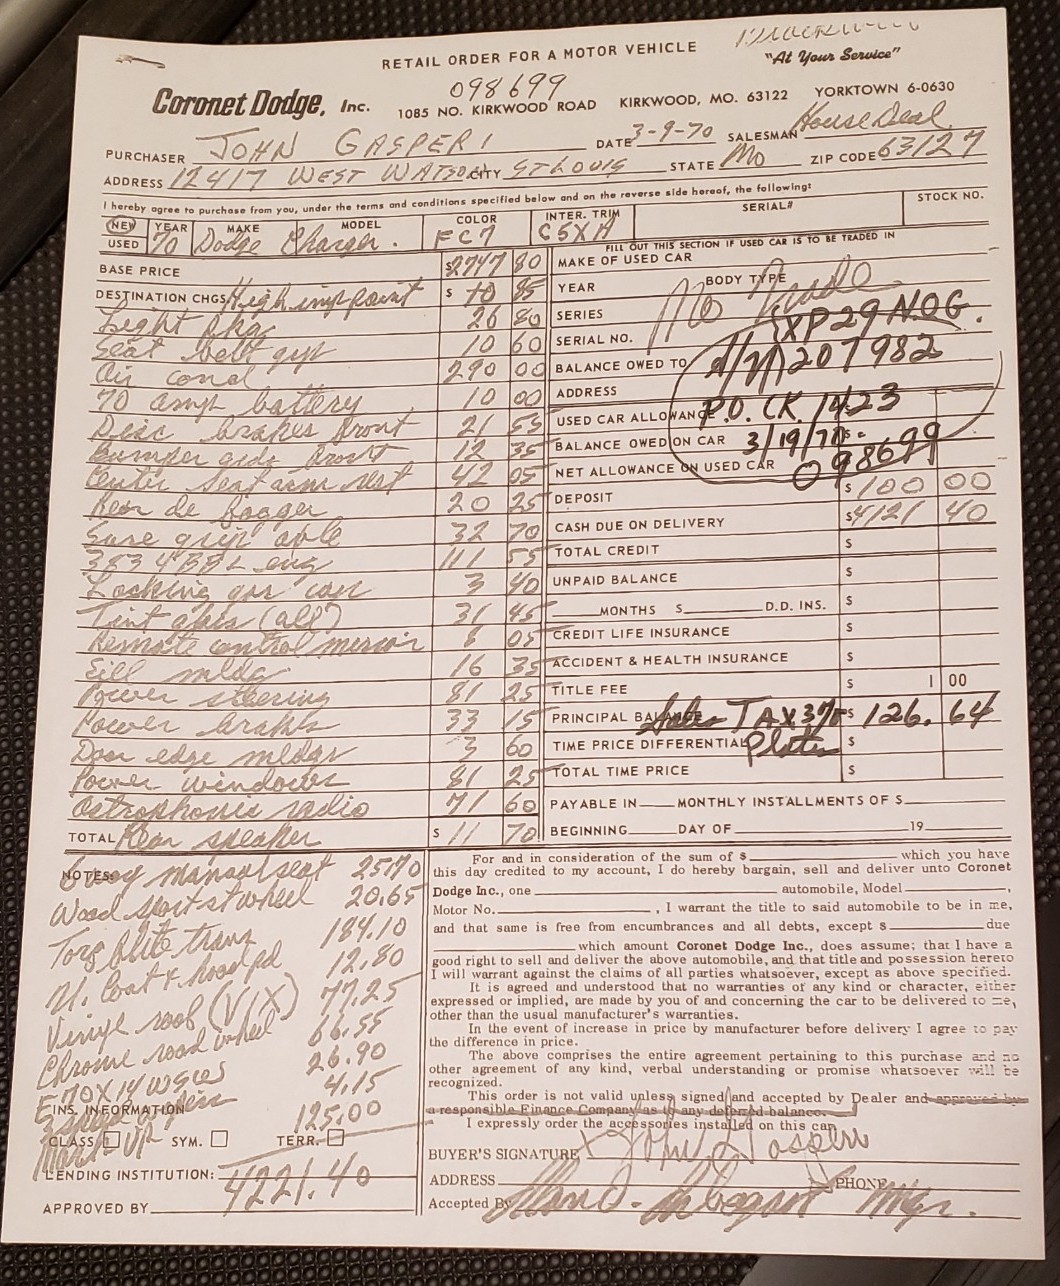 RETAIL ORDER FOR A MOTOR VEHICLE
"At Your Service"
098699
Coronet Dodge, Inc. 1085 NO. KIRKWOOD ROAD KIRKWOOD, MO. 63122 YORKTOWN 6-0630
PURCHASER JOHN GASPERI DATE 3-9-70 SALESMAN House Deal
ADDRESS 12417 WEST WATSON CITY ST LOUIS STATE Mo ZIP CODE 63127
I hereby agree to purchase from you, under the terms and conditions specified below and on the reverse side hereof, the following:
NEW USED YEAR 70 MAKE Dodge MODEL Charger. COLOR FC7 INTER. TRIM C5XA SERIAL# STOCK NO.
FILL OUT THIS SECTION IF USED CAR IS TO BE TRADED IN
BASE PRICE $2747 80
DESTINATION CHGS High imp paint $ 10 85
Light pkg 26 80
Seat belt grp 10 60
Air cond 290 00
70 amp battery 10 00
Disc brakes front 21 55
Bumper gids front 12 35
Center seat arm rest 42 05
Rear de fogger 20 25
Sure grip axle 32 70
383 4 BBL eng 111 55
Locking gas cap 3 40
Tint glass (all) 31 45
Remote control mirror 8 05
Sill mldg 16 35
Power steering 81 25
Power brakes 33 15
Door edge mldgs 3 60
Power windows 81 25
Astrophonic radio 71 60
TOTAL Rear speaker $ 11 70
MAKE OF USED CAR
YEAR BODY TYPE
No Trade
SERIES XP29 N.O.G.
SERIAL NO.
BALANCE OWED TO 207982
ADDRESS
USED CAR ALLOWANCE P.O. CK. 1423
BALANCE OWED ON CAR 3/19/70 $
NET ALLOWANCE ON USED CAR 098699
DEPOSIT $ 100 00
CASH DUE ON DELIVERY $4121 40
TOTAL CREDIT $
UNPAID BALANCE $
MONTHS $ D.D. INS. $
CREDIT LIFE INSURANCE $
ACCIDENT & HEALTH INSURANCE $
TITLE FEE $ 1 00
PRINCIPAL BALANCE Sales TAX 3% $ 126.64
TIME PRICE DIFFERENTIAL Plates $
TOTAL TIME PRICE $
PAYABLE IN MONTHLY INSTALLMENTS OF $
BEGINNING DAY OF 19
NOTES: 6 way manual seat 25 70
Wood sport st wheel 20.65
Torq flite trans 184.10
U. Coat & hood pd 12.80
Vinyl roof (V1X) 77.25
Chrome road wheel 66.55
F70X14 WSWS 26.90
3 speed wipers 4.15
Mark up 125.00
INS. INFORMATION
CLASS SYM. TERR.
LENDING INSTITUTION: 4221.40
APPROVED BY
For and in consideration of the sum of $ which you have
this day credited to my account, I do hereby bargain, sell and deliver unto Coronet
Dodge Inc., one automobile, Model ,
Motor No. , I warrant the title to said automobile to be in me,
and that same is free from encumbrances and all debts, except $ due
which amount Coronet Dodge Inc., does assume; that I have a
good right to sell and deliver the above automobile, and that title and possession hereto
I will warrant against the claims of all parties whatsoever, except as above specified.
It is agreed and understood that no warranties of any kind or character, either
expressed or implied, are made by you of and concerning the car to be delivered to me,
other than the usual manufacturer's warranties.
In the event of increase in price by manufacturer before delivery I agree to pay
the difference in price.
The above comprises the entire agreement pertaining to this purchase and no
other agreement of any kind, verbal understanding or promise whatsoever will be
recognized.
This order is not valid unless signed and accepted by Dealer and approved by
a responsible Finance Company as to any deferred balance.
I expressly order the accessories installed on this car.
BUYER'S SIGNATURE X John Gasperi
ADDRESS PHONE
Accepted By Mgr.